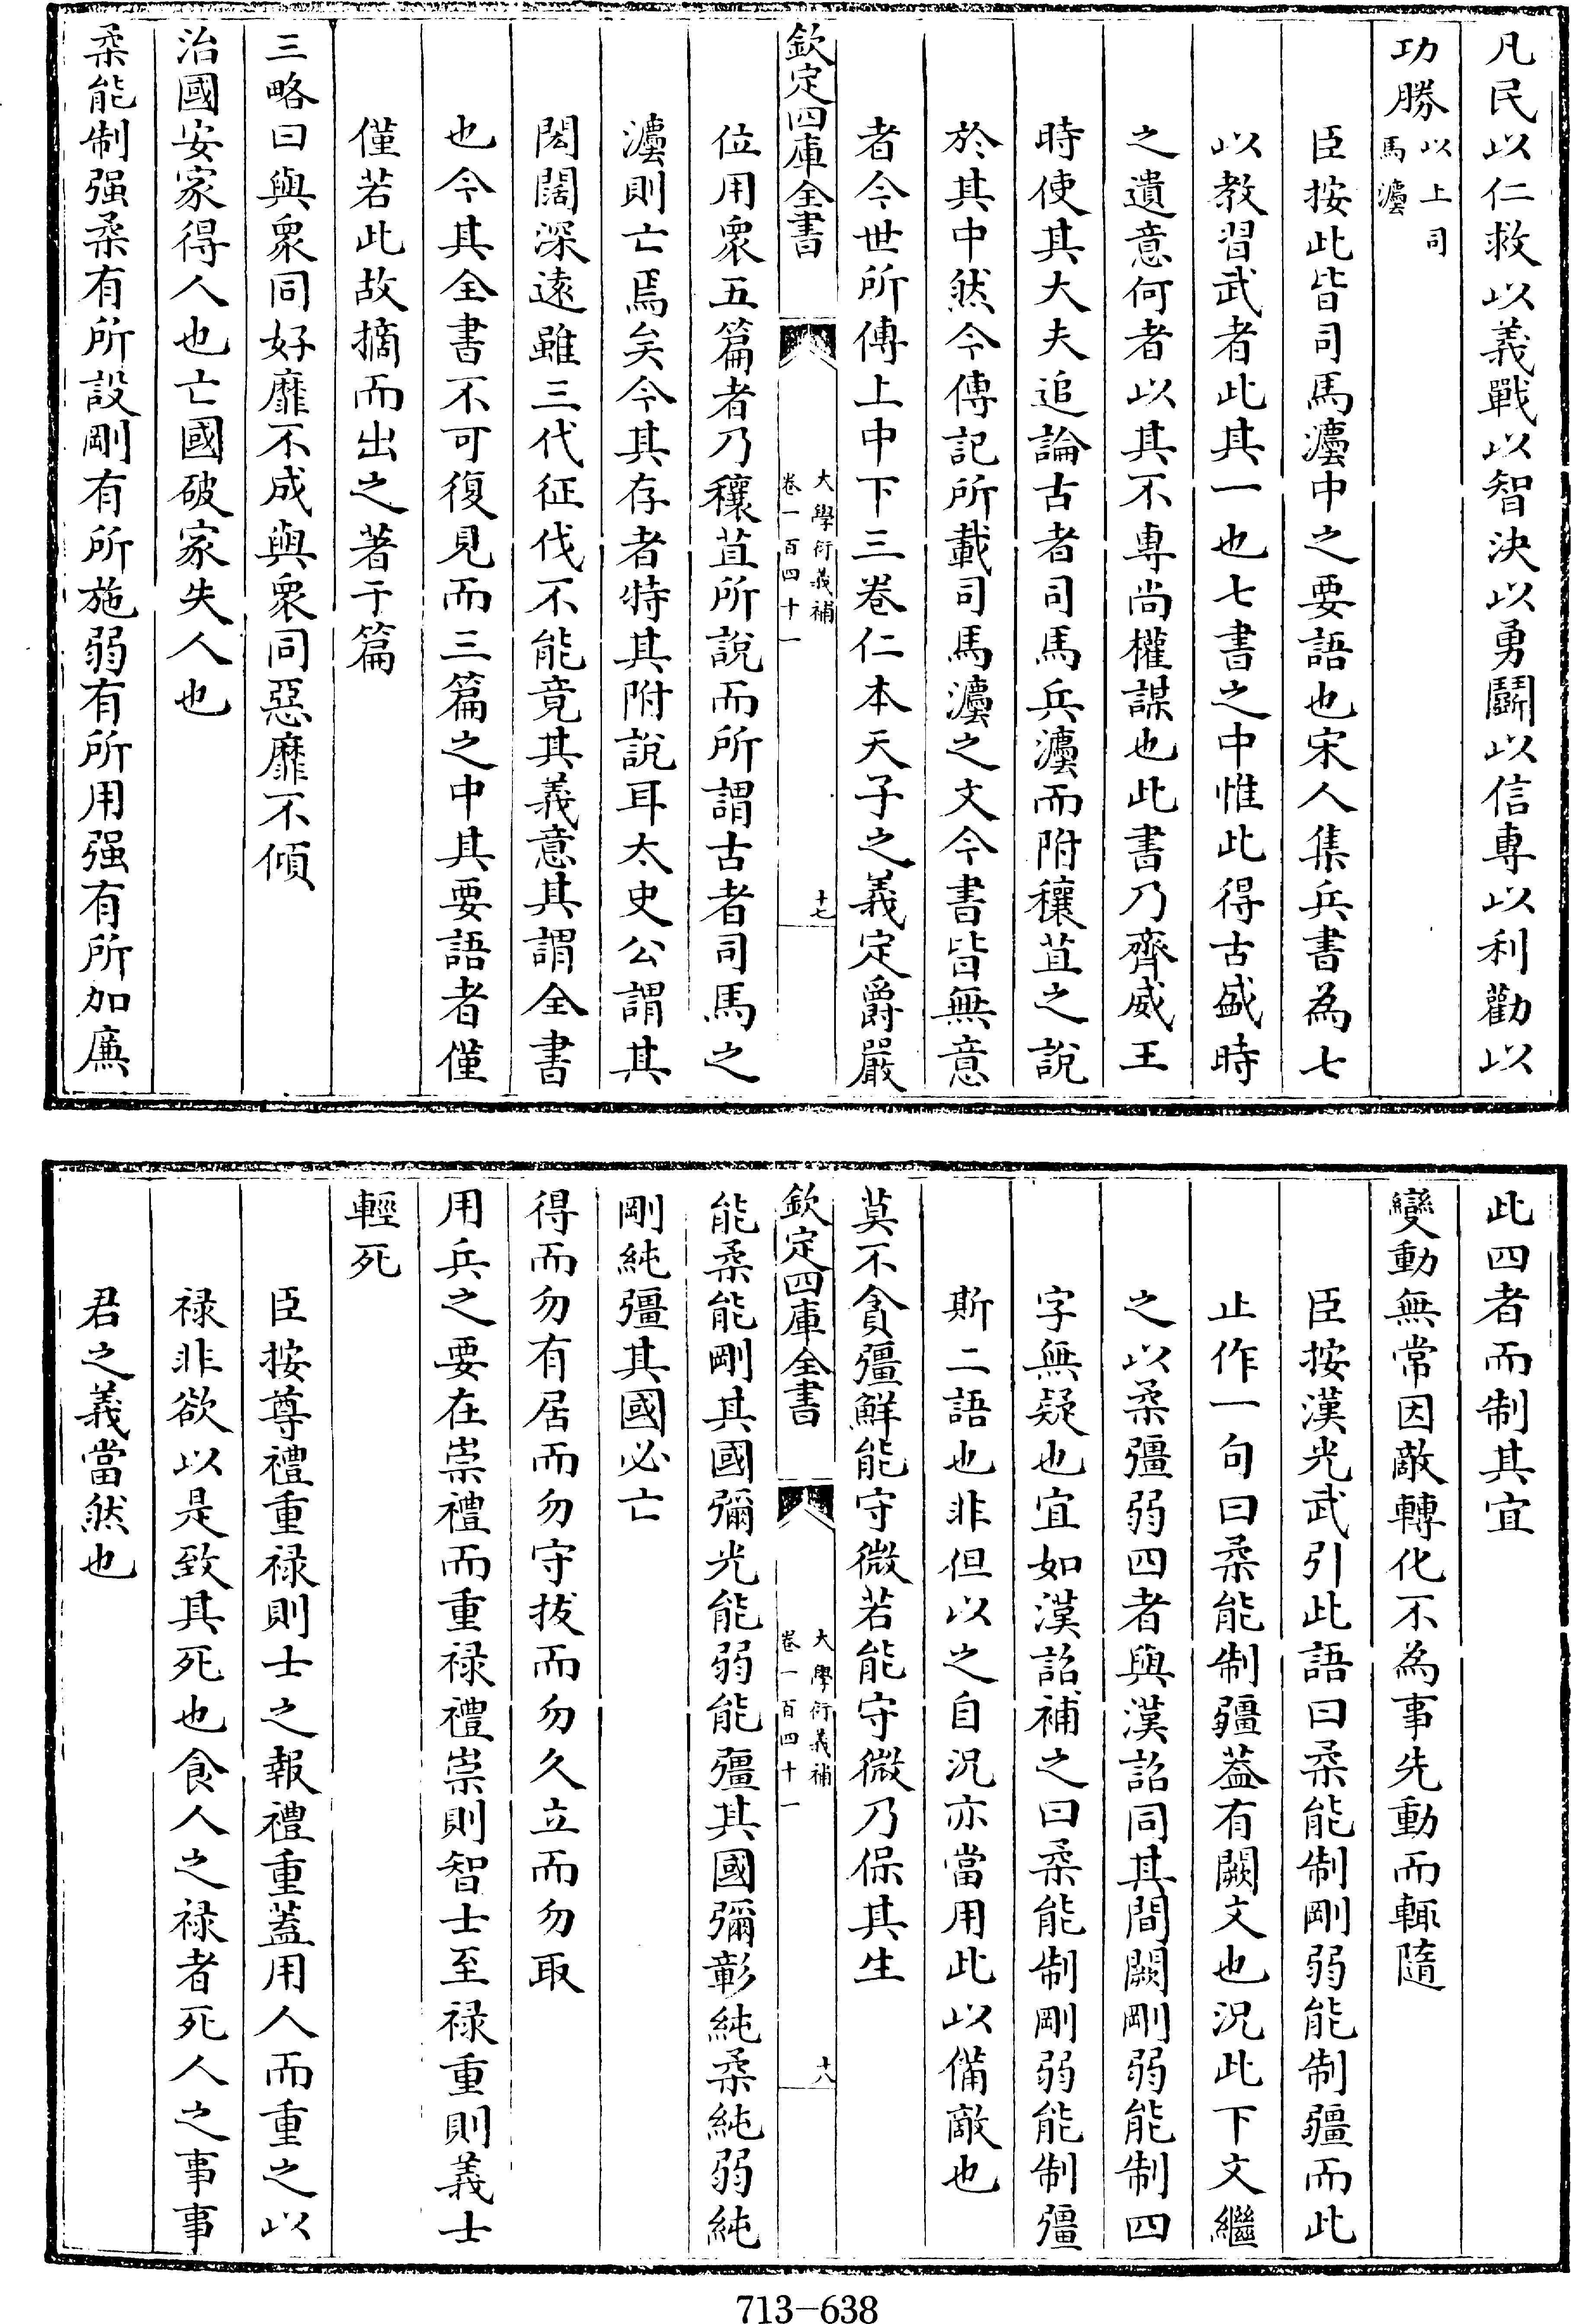 凡民以仁救以義戰以智決以勇鬭以信專以利勸以
功勝以上司馬灋
臣按此皆司馬灋中之要語也宋人集兵書為七
以教習武者此其一也七書之中惟此得古盛時
之遺意何者以其不專尚權謀也此書乃齊威王
時使其大夫追論古者司馬兵灋而附穰苴之說
於其中然今傳記所載司馬灋之文今書皆無意
者今世所傳上中下三卷仁本天子之義定爵嚴
欽定四庫全書
大學衍義補
卷一百四十一
十七
位用衆五篇者乃穰苴所說而所謂古者司馬之
灋則亡焉矣今其存者特其附說耳太史公謂其
閎闊深遠雖三代征伐不能竟其義意其謂全書
也今其全書不可復見而三篇之中其要語者僅
僅若此故摘而出之著于篇
三略曰與衆同好靡不成與衆同惡靡不傾
治國安家得人也亡國破家失人也
柔能制强柔有所設剛有所施弱有所用强有所加㢘
此四者而制其宜
變動無常因敵轉化不為事先動而輒隨
臣按漢光武引此語曰柔能制剛弱能制疆而此
止作一句曰柔能制疆蓋有闕文也況此下文繼
之以柔彊弱四者與漢詔同其間闕剛弱能制四
字無疑也宜如漢詔補之曰柔能制剛弱能制彊
斯二語也非但以之自況亦當用此以備敵也
莫不貪彊鮮能守微若能守微乃保其生
欽定四庫全書
大學衍義補
卷一百四十一
十八
能柔能剛其國彌光能弱能彊其國彌彰純柔純弱純
剛純彊其國必亡
得而勿有居而勿守拔而勿久立而勿取
用兵之要在崇禮而重禄禮崇則智士至禄重則義士
輕死
臣按尊禮重禄則士之報禮重蓋用人而重之以
禄非欲以是致其死也食人之禄者死人之事事
君之義當然也
713-638